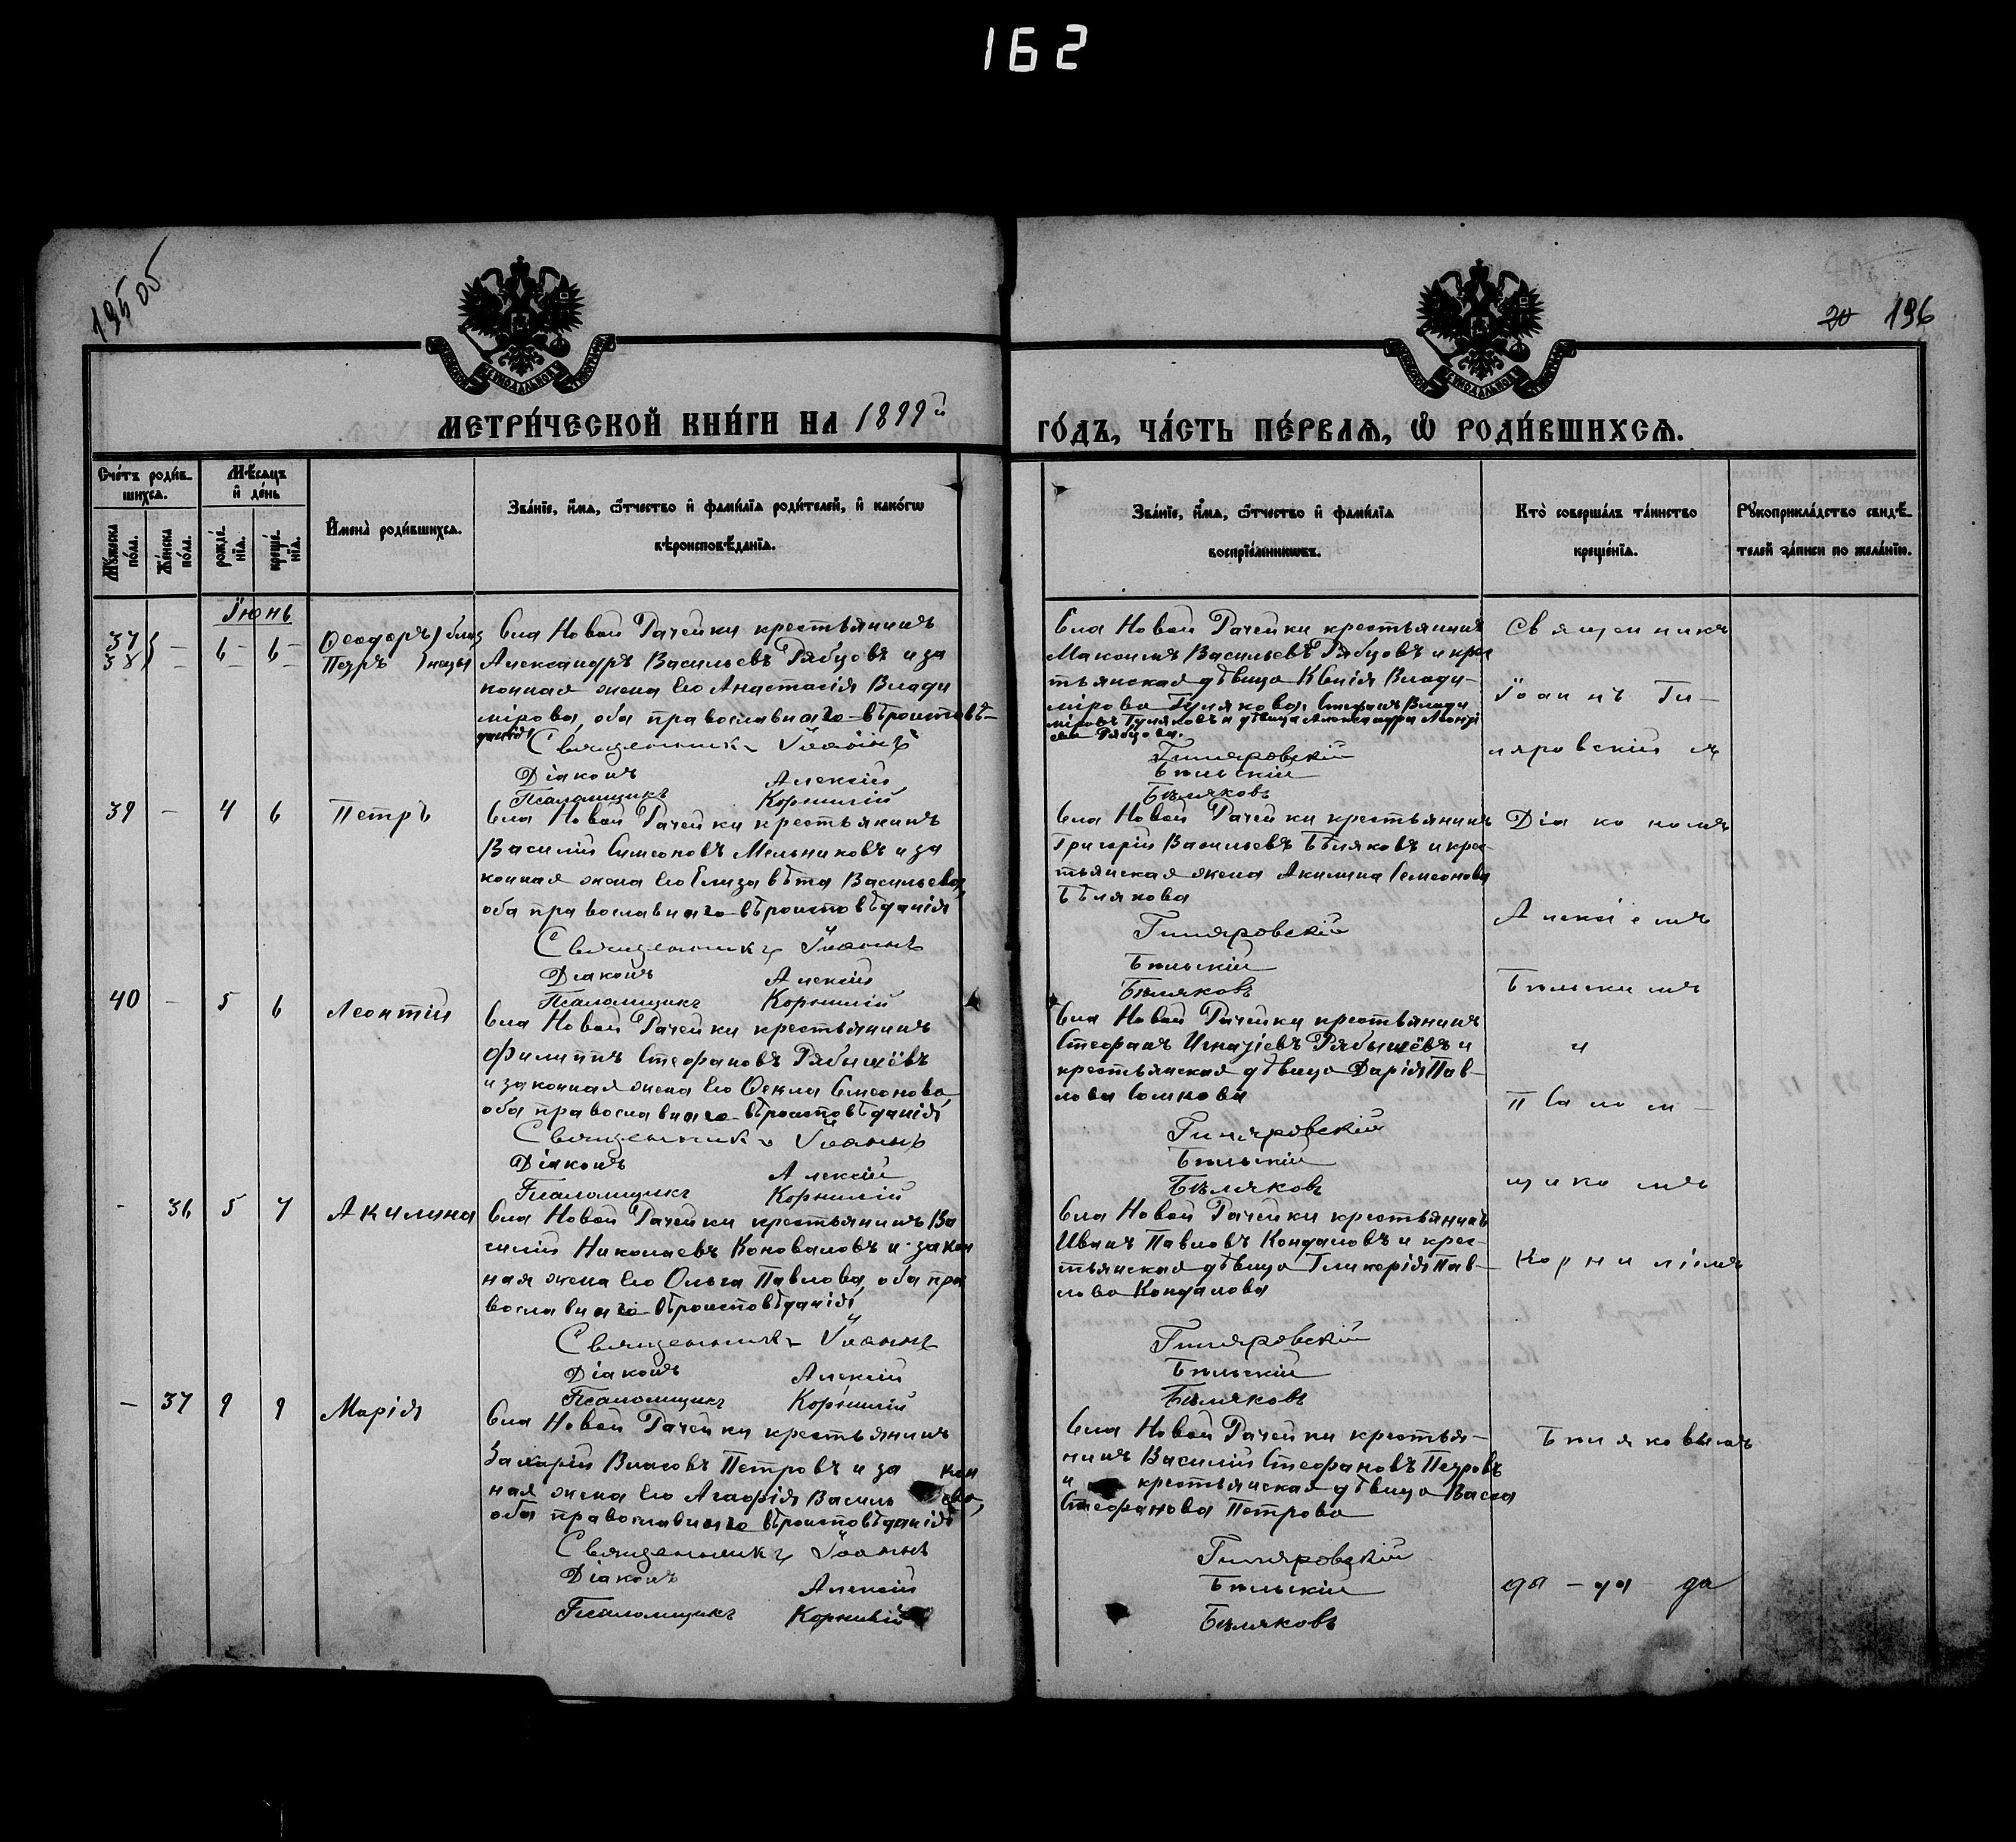 162
195 об
20 196
МЕТРИ́ЧЕСКОЙ КНИ́ГИ НА 1899й
ГО́ДЪ, ЧА́СТЬ ПЕ́РВАѦ, Ѡ РОДИ́ВШИХСѦ.
Сче́тъ роди́в-
шихсѧ.
Мѣ́сѧцъ
и҆ де́нь
Мꙋ́жеска
по́ла.
Же́нска
по́ла.
рожде́-
нїѧ.
креще́-
нїѧ.
И҆мена̀ роди́вшихсѧ.
Зва́нїе, и҆́мѧ, ѻ҆́тчество и҆ фами́лїѧ роди́телей, и҆ како́гѡ
вѣроисповѣ́данїѧ.
Зва́нїе, и҆́мѧ, ѻ҆́тчество и҆ фами́лїѧ
воспрїе́мникѡвъ.
Кто̀ соверша́лъ та́инство
креще́нїѧ.
Рꙋкоприкла́дство свидѣ́-
телей за́писи по жела́нїю.
Іюнь
37 — 6 6 Ѳеодоръ близ
38 — Петръ нецы
Села Новой Рачейки крестьянинъ
Александръ Васильевъ Рябцовъ и за
конная жена его Анастасія Влади
мірова, оба православнаго вѣроисповѣ-
данія
Священникъ Іоаннъ
Діаконъ Алексій
Псаломщикъ Корнилій
Села Новой Рачейки крестьянинъ
Максимъ Васильевъ Рябцовъ и крес
тьянская дѣвица Ксенія Влади-
мірова Гулякова, Стефанъ Влади
міровъ Гуляковъ и дѣвица Александра Леонті
ева Рябцова.
Гиляровскій
Бѣльскій
Бѣляковъ
39 — 4 6 Петръ
Села Новой Рачейки крестьянинъ
Василій Симеоновъ Мельниковъ и за
конная жена его Елизавѣта Васильева,
оба православнаго вѣроисповѣданія
Священникъ Іоаннъ
Діаконъ Алексій
Псаломщикъ Корнилій
Села Новой Рачейки крестьянинъ
Григорій Васильевъ Бѣляковъ и крес-
тьянская жена Акилина Семеонова
Бѣлякова
Гиляровскій
Бѣльскій
Бѣляковъ
40 — 5 6 Леонтій
Села Новой Рачейки крестьянинъ
Филиппъ Стефановъ Рябышёвъ
и законная жена его Ѳекла Семеонова
оба православнаго вѣроисповѣданія
Священникъ Іоаннъ
Діаконъ Алексій
Псаломщикъ Корнилій
Села Новой Рачейки крестьянинъ
Стефанъ Игнатіевъ Рябышёвъ и
крестьянская дѣвица Дарія Пав-
лова Сомкова
Гиляровскій
Бѣльскій
Бѣляковъ
— 36 5 7 Акилина
Села Новой Рачейки крестьянинъ Ва
силій Николаевъ Коноваловъ и закон
ная жена его Ольга Павлова, оба пра
вославнаго вѣроисповѣданія
Священникъ Іоаннъ
Діаконъ Алексій
Псаломщикъ Корнилій
Села Новой Рачейки крестьянинъ
Иванъ Павловъ Кондаловъ и крес-
тьянская дѣвица Гликерія Пав-
лова Кондалова
Гиляровскій
Бѣльскій
Бѣляковъ
— 37 9 9 Марія
Села Новой Рачейки крестьянинъ
Захарій Власовъ Петровъ и за кон
ная жена его Агафія Василь ева,
оба православнаго вѣроисповѣданія
Священникъ Іоаннъ
Діаконъ Алексій
Псаломщикъ Корнилій
Села Новой Рачейки крестья-
нинъ Василій Стефановъ Петровъ
и крестьянская дѣвица Васса
Стефанова Петрова
Гиляровскій
Бѣльскій
Бѣляковъ
Священникъ
Іоаннъ Ги-
ляровскій съ
Діакономъ
Алексіемъ
Бѣльскимъ
и
Псалом-
щикомъ
Корниліемъ
Бѣляковымъ